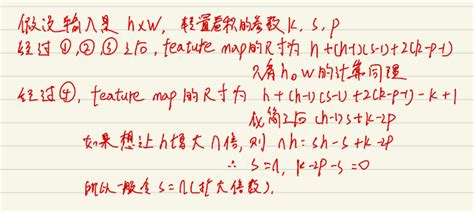 假设输入是 h×w, 转置卷积的参数 k, s, p
经过 ①,②,③ 之后, feature map的尺寸为 h+(h-1)(s-1)+2(k-p-1)
只看h。w的计算同理
经过④, feature map 的尺寸为 h+(h-1)(s-1)+2(k-p-1)-k+1
化简之后 (h-1)s+k-2p
如果想让h增大n倍, 则 nh = sh-s+k-2p
∴ s=n, k-2p-s=0
所以一般会 s=n(扩大倍数).